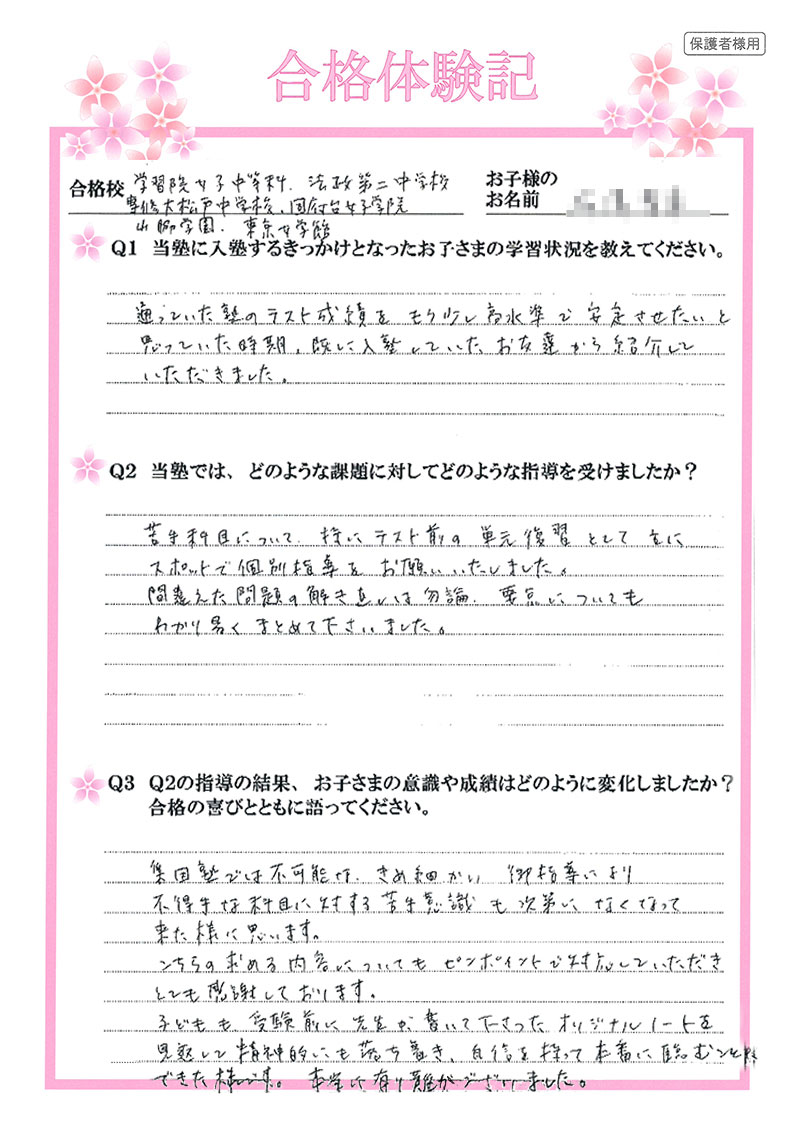 保護者様用
合格体験記
合格校 学習院女子中等科、法政第二中学校
専修大松戸中学校、国府台女子学院
山脇学園、東京女学館
お子様の
お名前
Q1 当塾に入塾するきっかけとなったお子さまの学習状況を教えてください。
通っていた塾のテスト成績を もう少し高水準で 安定させたいと
思っていた時期、既に入塾していたお友達から紹介して
いただきました。
Q2 当塾では、どのような課題に対してどのような指導を受けましたか？
苦手科目について、特にテスト前の 単元復習 として 主に
スポットで個別指導を お願いいたしました。
間違えた問題の解き直しは勿論、要点についても
わかり易く まとめて下さいました。
Q3 Q2の指導の結果、お子さまの意識や成績はどのように変化しましたか？
合格の喜びとともに語ってください。
集団塾では不可能な、きめ細かい 御指導により
不得手な科目に対する苦手意識も次第に なくなって
来た様に思います。
こちらの求める内容についても ピンポイントで対応していただき
とても感謝しております。
子どもも 受験前に 先生が 書いて下さった オリジナルノートを
見返して 精神的にも落ち着き、自信を持って本番に臨むことが
できた様です。本当に有り難うございました。